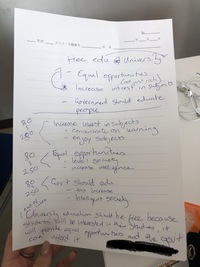 Free edu @ Univers.
- Equal opportunities
(not just rich)
- Increase interest in subjects
- Government should educate
people
80
250
Increase interest in subjects
- concentrate on learning
- enjoy subjects
80
250
Equal opportunities
- level society
- increase intelligence
80
250
Gov't should edu
- tax increase
- Intelligent society
University education should be free because
students will be interested in their studies, it
will provide equal opportunities and the gov't
can afford it